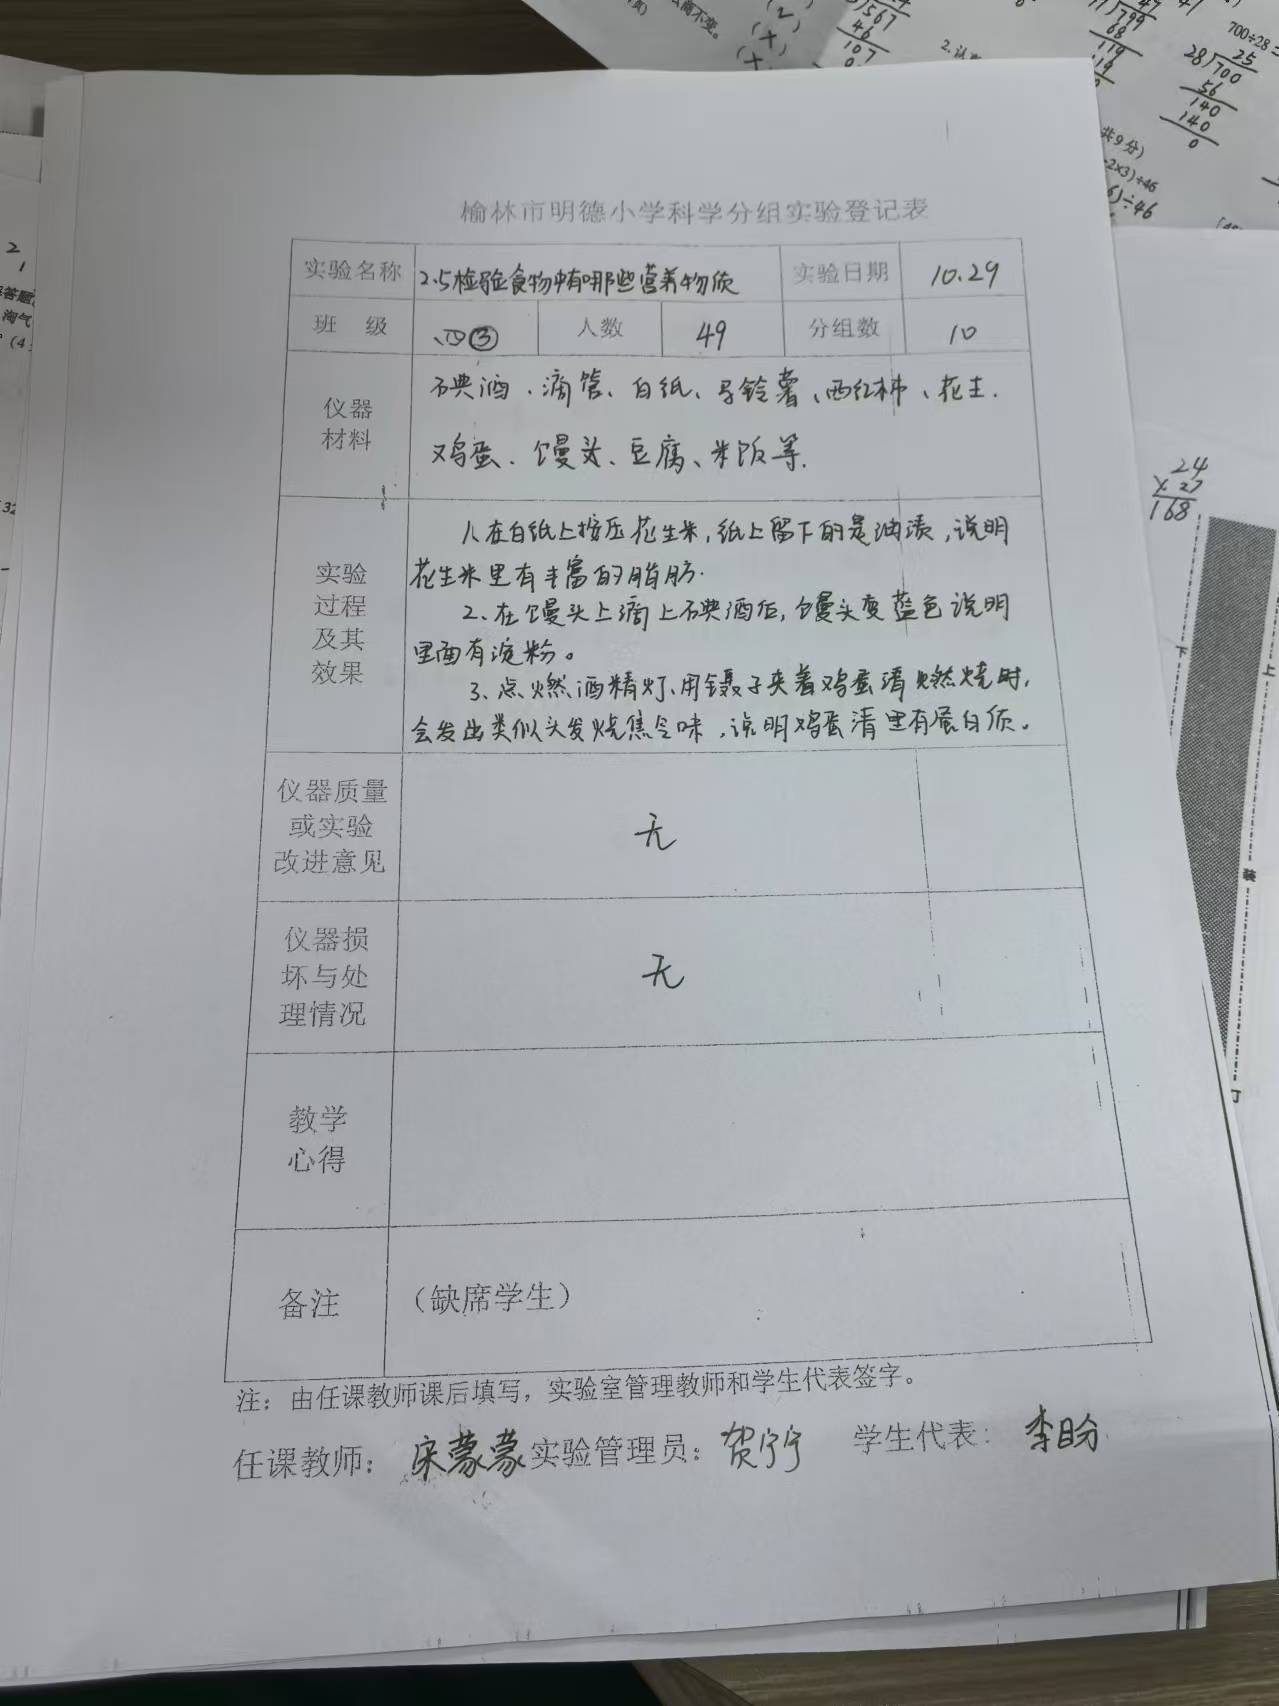 榆林市明德小学科学分组实验登记表
实验名称 2.5检验食物中有哪些营养物质 实验日期 10.29
班 级 四③ 人数 49 分组数 10
仪器材料 碘酒、滴管、白纸、马铃薯、西红柿、花生.
鸡蛋、馒头、豆腐、米饭等.
实验过程及其效果
1、在白纸上按压花生米,纸上留下的是油渍,说明
花生米里有丰富的脂肪.
2、在馒头上滴上碘酒后,馒头变蓝色说明
里面有淀粉。
3、点燃酒精灯、用镊子夹着鸡蛋清燃烧时,
会发出类似头发烧焦气味,说明鸡蛋清里有蛋白质。
仪器质量或实验改进意见 无
仪器损坏与处理情况 无
教学心得
备注 （缺席学生）
注：由任课教师课后填写，实验室管理教师和学生代表签字。
任课教师： 宋蒙蒙 实验管理员： 贺宁宁 学生代表：
700÷28=
25
28)700
56
140
140
0
共9分）
÷46
24
×27
168
上
下
装
订